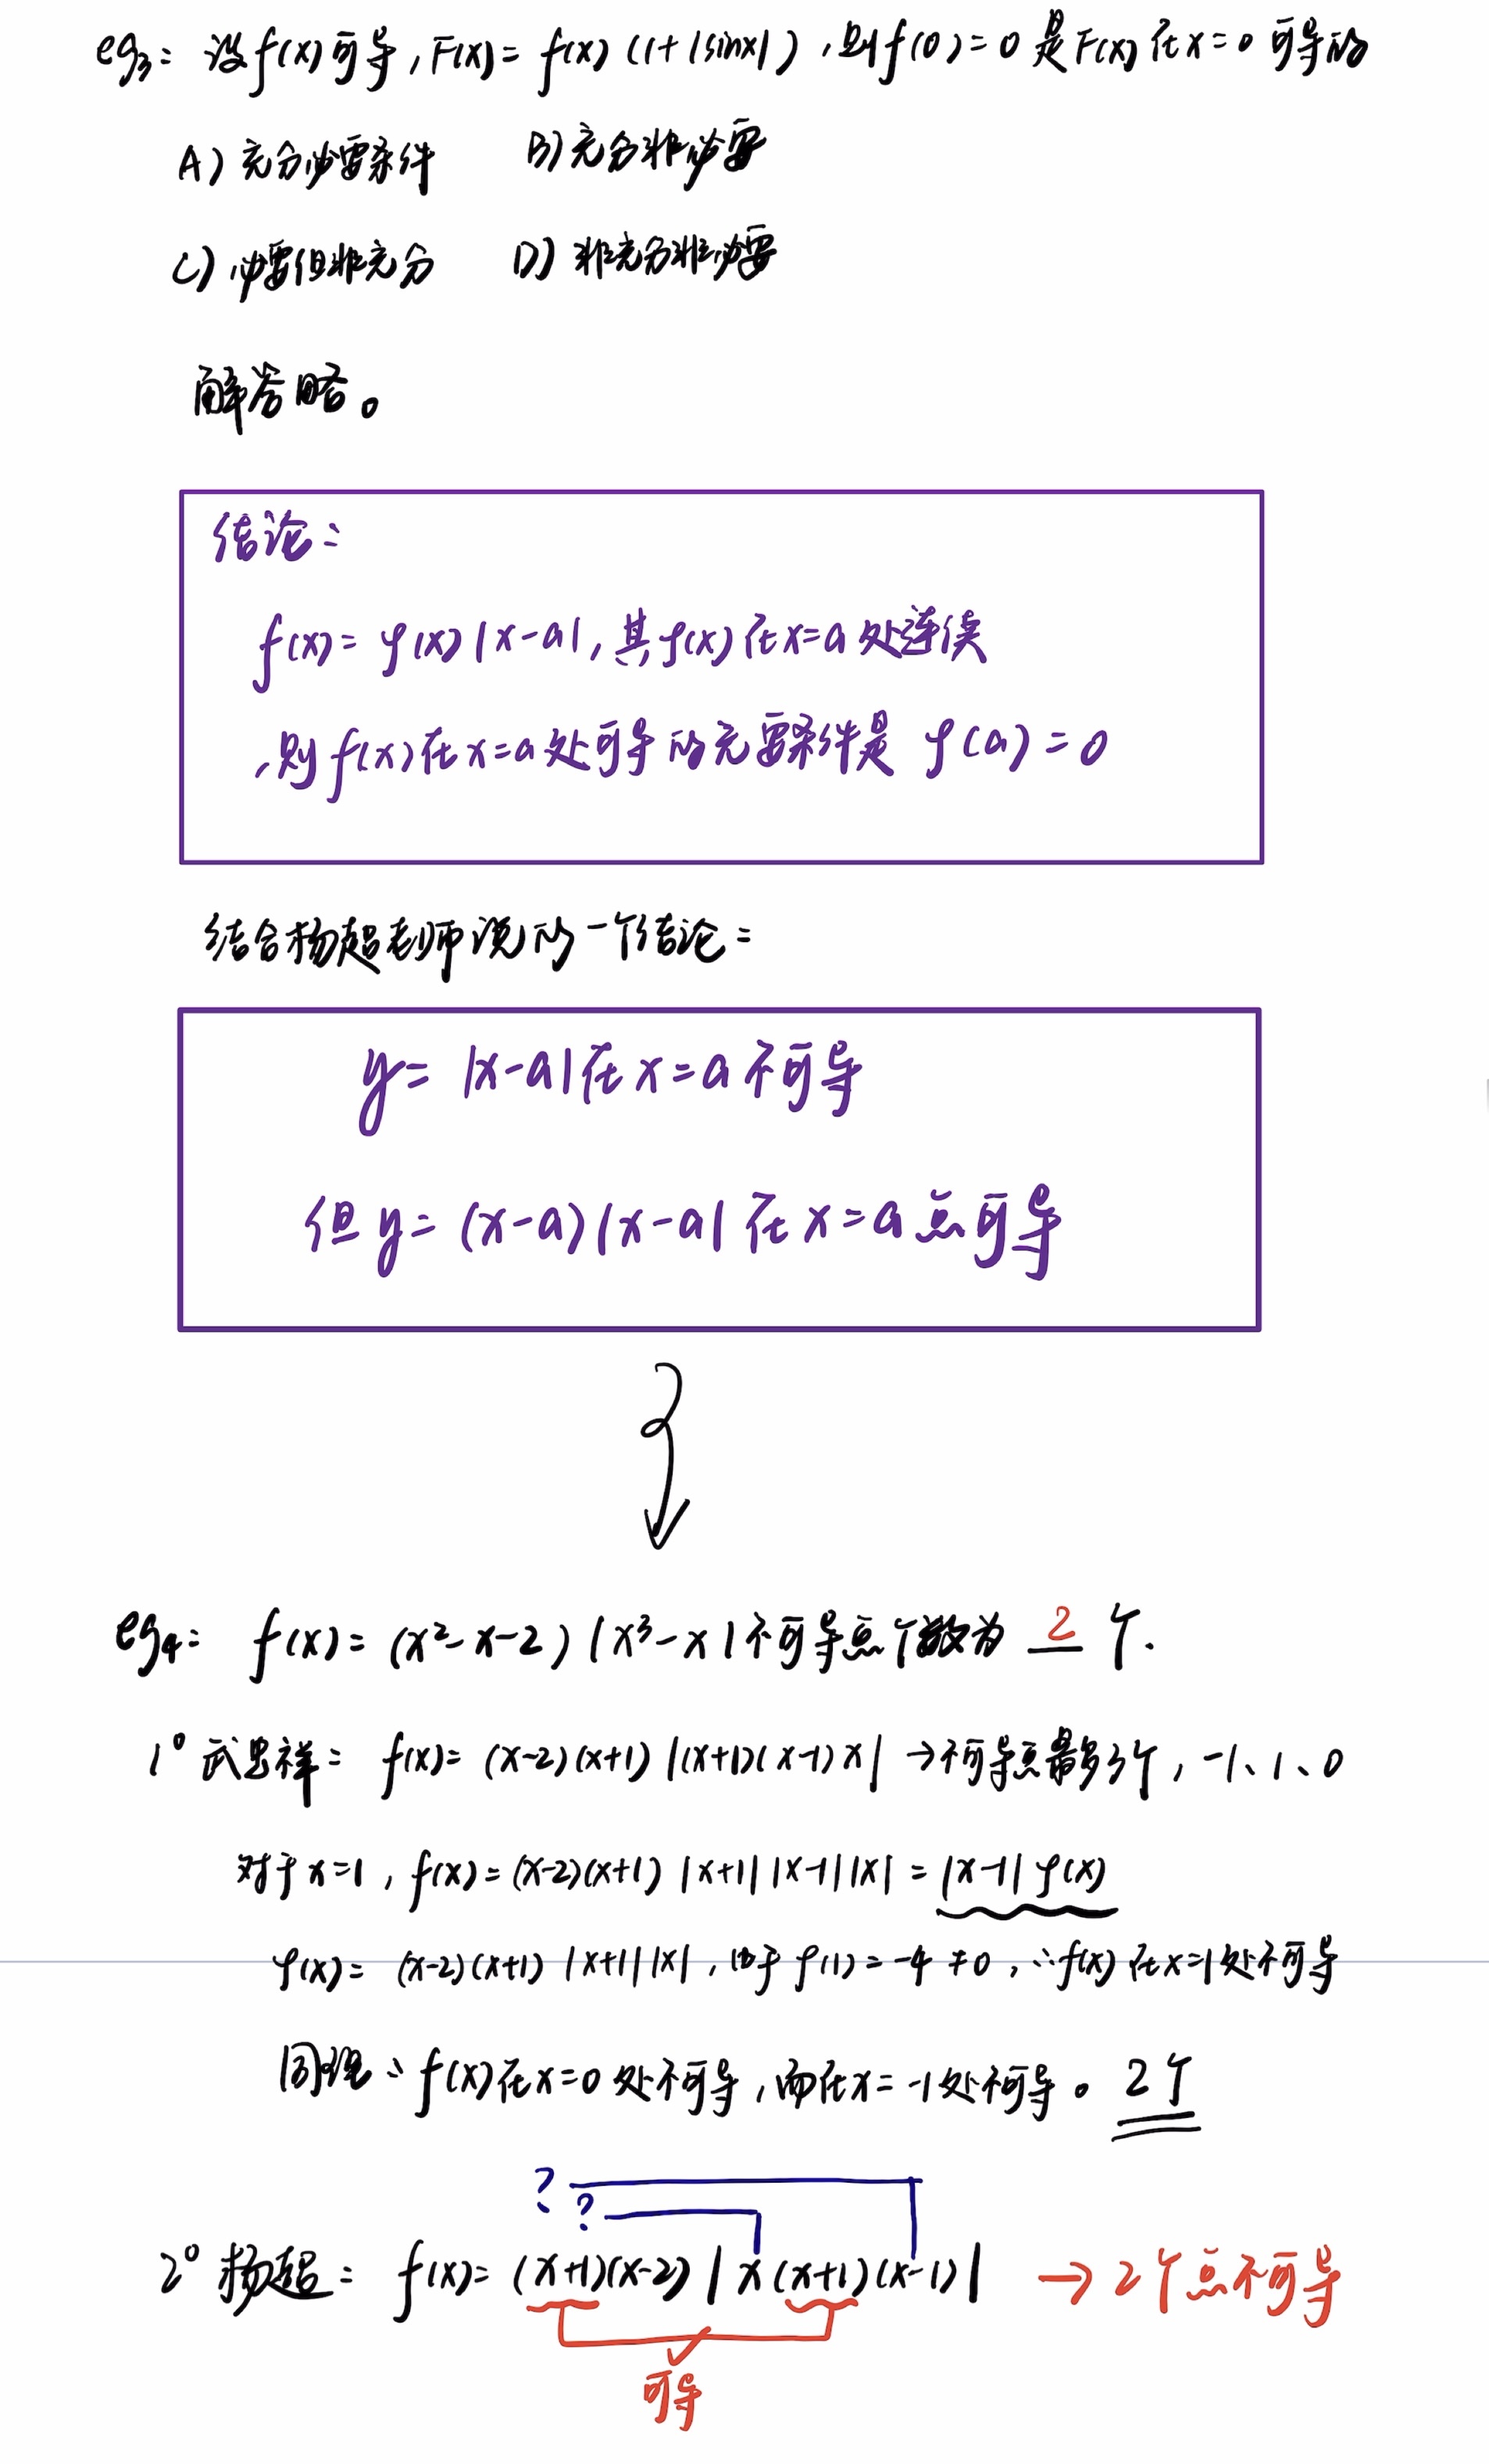 eg3: 设f(x)可导, F(x)= f(x) (1+|sinx|), 则f(0)=0 是F(x)在x=0可导的
A) 充分必要条件 B) 充分非必要
C) 必要但非充分 D) 非充分非必要
解答略。
结论:
f(x)= φ(x)|x-a|, 其φ(x)在x=a处连续
,则f(x)在x=a处可导的充要条件是 φ(a)=0
结合杨超老师说的一个结论:
y= |x-a|在x=a不可导
但y= (x-a)|x-a|在x=a点可导
eg4: f(x)= (x²-x-2)|x³-x|不可导点个数为 2 个.
1° 武忠祥: f(x)= (x-2)(x+1)|(x+1)(x-1)x| →不可导点最多3个, -1、1、0
对于x=1, f(x)=(x-2)(x+1)|x+1||x-1||x| = |x-1|φ(x)
φ(x)= (x-2)(x+1)|x+1||x|, 由于φ(1)=-4≠0, ∴f(x)在x=1处不可导
同理: f(x)在x=0处不可导, 而在x=-1处可导。 2个
? ?
2° 杨超: f(x)= (x+1)(x-2)|x(x+1)(x-1)| → 2个点不可导
可导